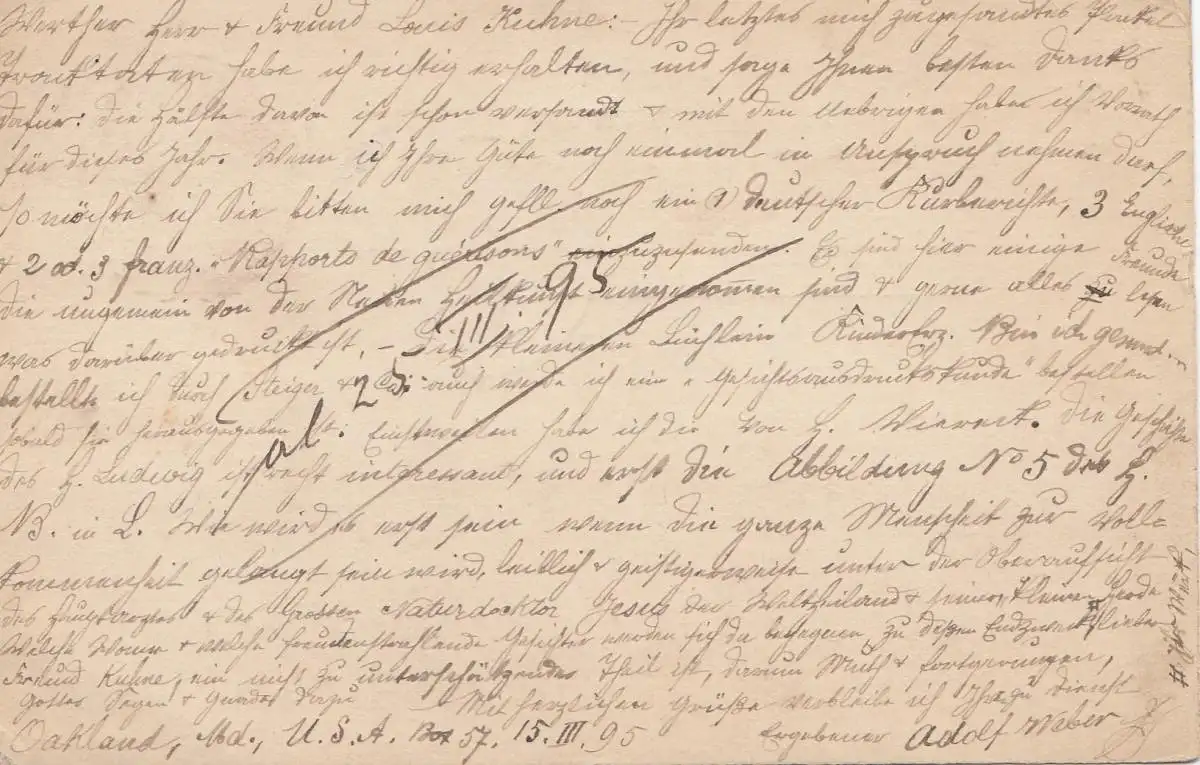 Werther Herr & Freund Louis Kuhne:- Ihr letztes mich zugesandtes Paket
Tracktaten habe ich richtig erhalten, und sage Ihnen besten Danks
dafür: die Hälfte davon ist schon versandt & mit den Uebrigen habe ich Vorrath
für dieses Jahr. Wenn ich Ihre Güte noch einmal in Anspruch nehmen darf,
so möchte ich Sie bitten mich gefll. noch ein (1) deutscher Kurberichte, 3 Englische
& 2 od. 3 franz. "Rapports de guérisons" einzusenden. Es sind hier einige Freunde
die ungemein von der Neuen Heilkunst eingenomen sind & gerne alles zu lesen
was darüber gedruckt ist, - Die kleineren Büchlein KinderErz. Bin ich gesund ...
bestellte ich durch Steiger & Co. auch werde ich eine "Gesichtsausdruckskunde" bestellen
al. 25 III 95
sobald sie herausgegeben ist. Einstweilen habe ich die von H. Viereck. Die Geschichte
des H. Ludwig ist recht interessant, und erst die Abbildung No 5 des H.
B. in L. Wie wird es erst sein wenn die ganze Menscheit zur Voll=
kommenheit gelangt sein wird, leiblich & geistigerweise unter der Oberaufsicht
des Hauptarztes & des Grossen Naturdoktor Jesus der Weltheiland & seiner kleinen Herde
Welche Wonne & welche freudenstrahlende Gesichter werden sich da begegnen, zu dessen Endzweck # lieber
Freund Kuhne, ein nicht zu unterschätzendes Theil ist, darum Muth & fortgerungen,
Gottes Segen & Gnade dazu Mit herzlichen Grüße verbleibe ich Ihr zu dienst
Oakland, Md., U.S.A. Box 57. 15. III. 95 Ergebener Adolf Weber
# Ihr Werk,